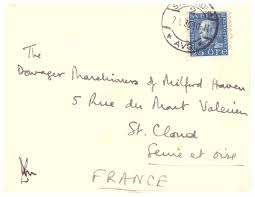 SVERIGE
ÖRE
The
Dowager Marchioness of Milford Haven
5 Rue du Mont Valerien
St. Cloud
Seine et Oise
FRANCE